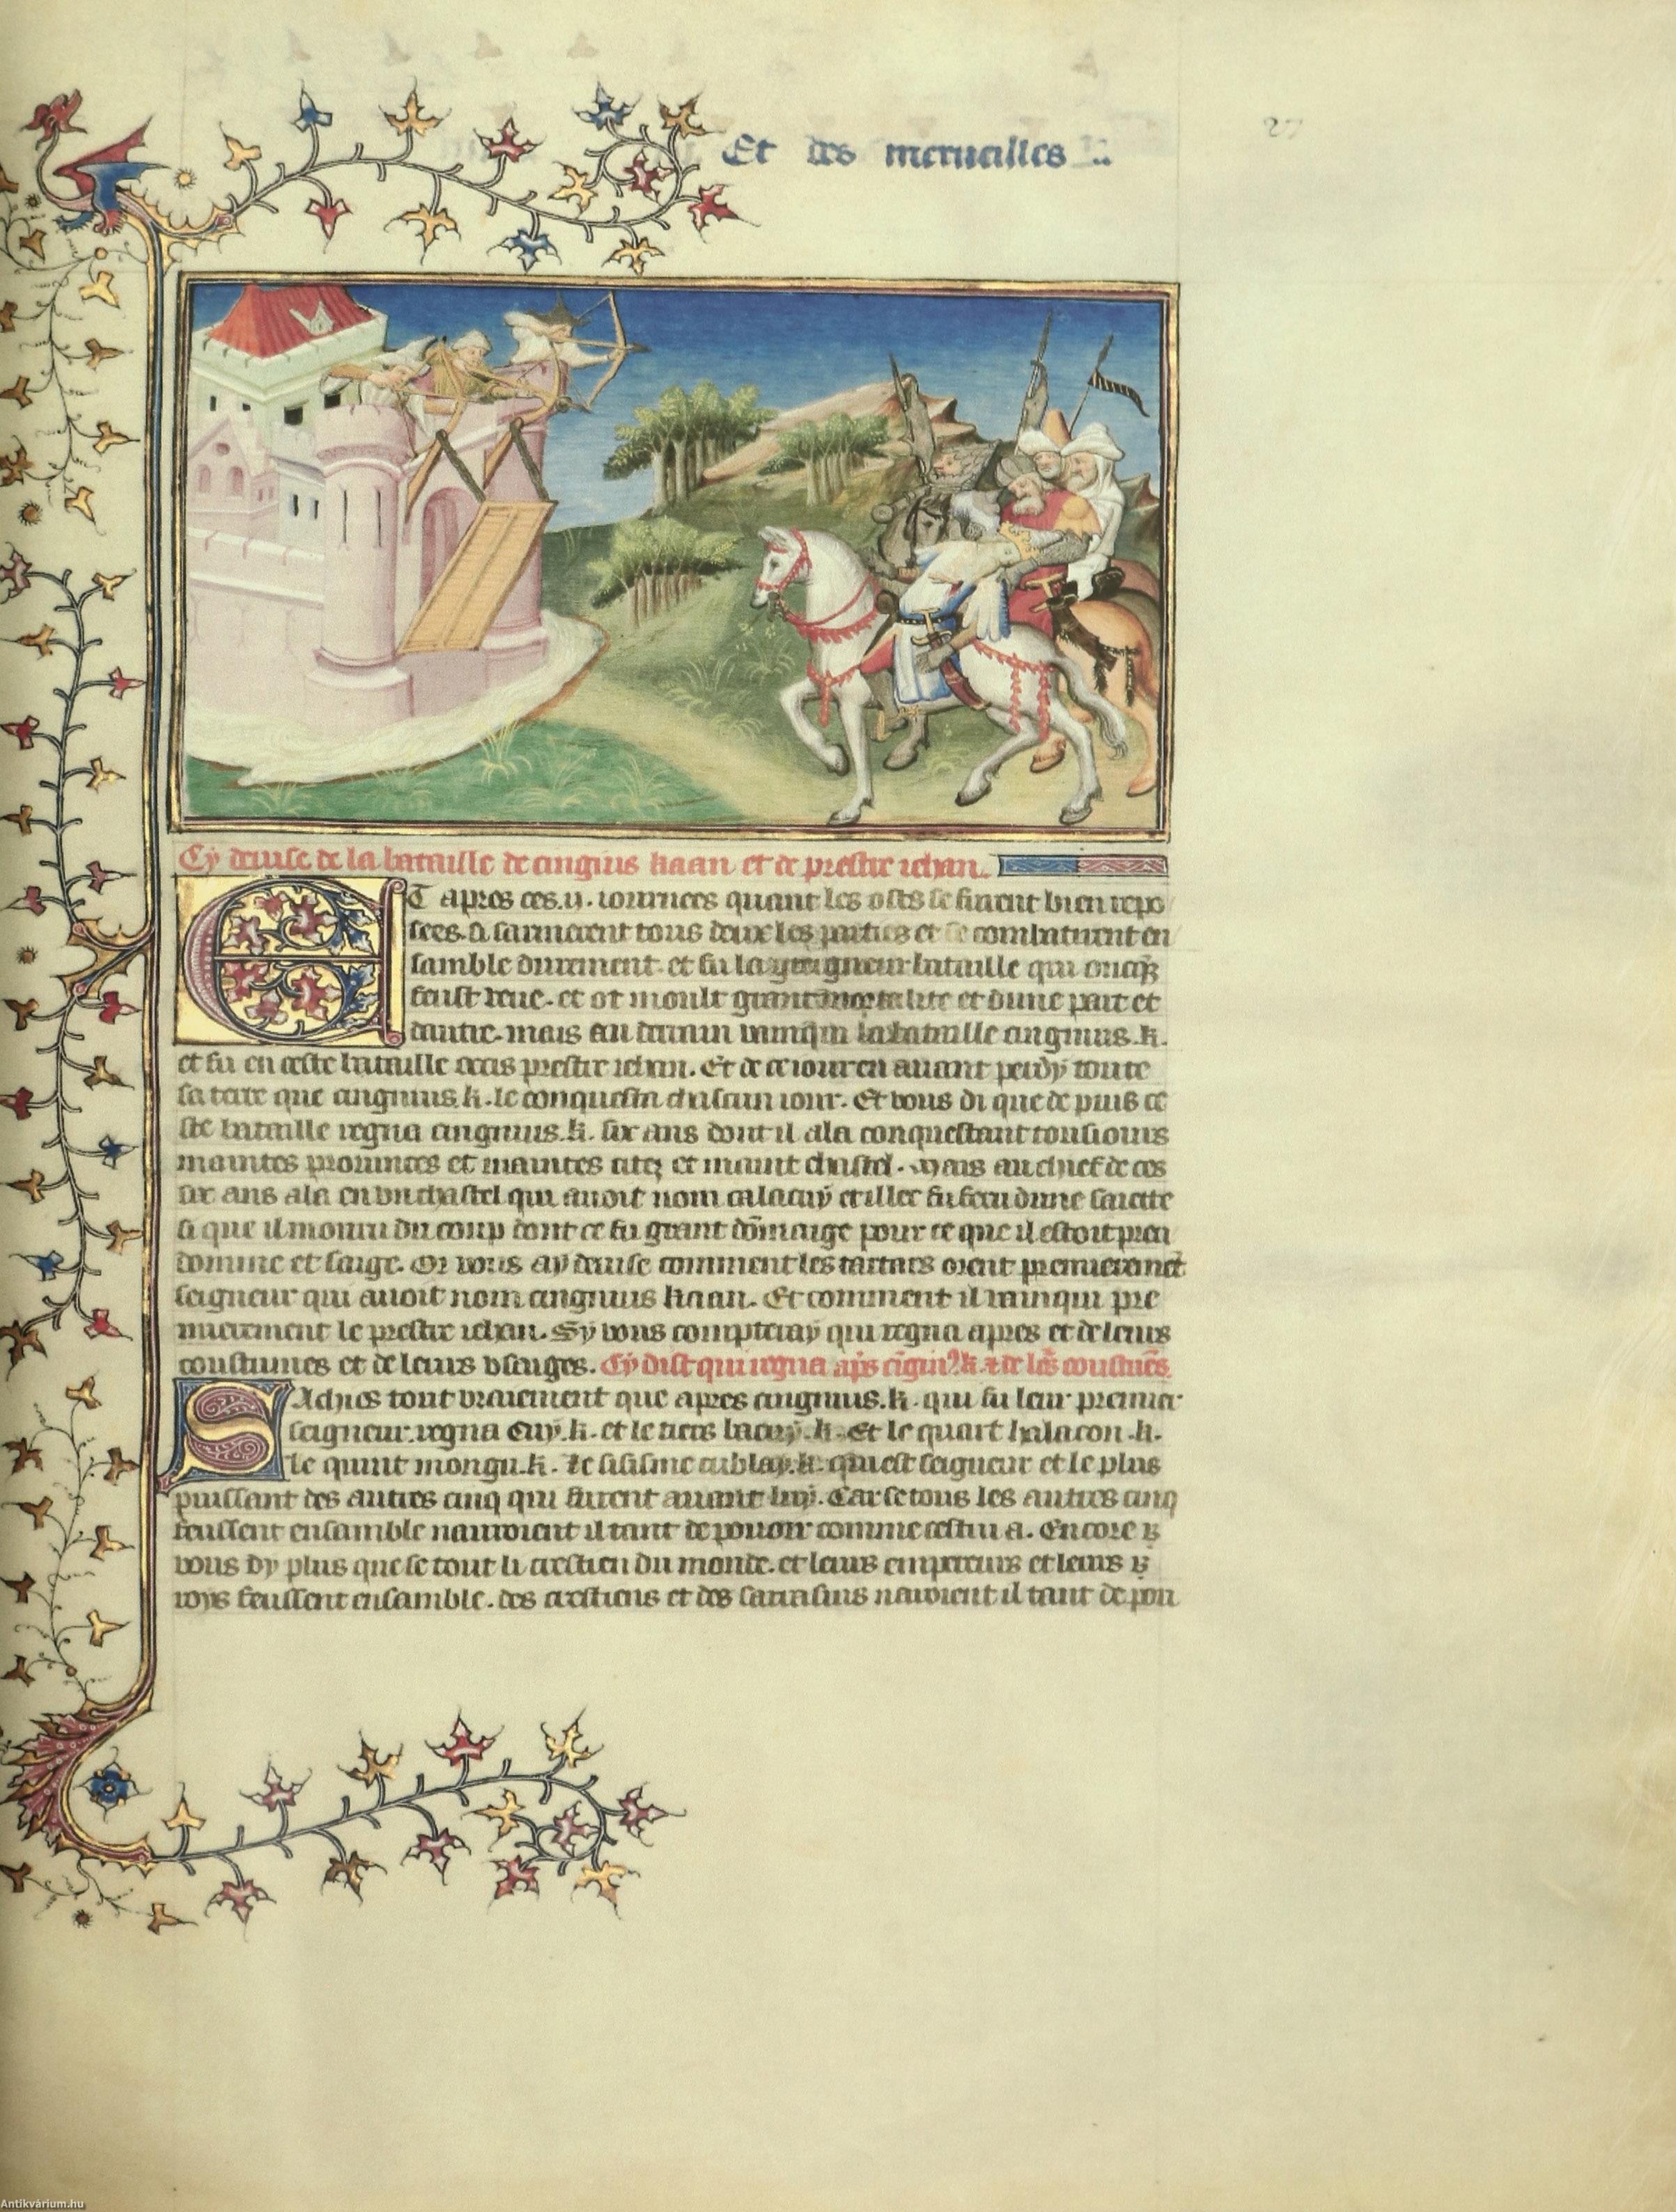 Et des merueilles
27
Cy deuise de la bataille de cinguis kaan et de prestre iehan.
ET apres ces .ij. iournees quant les osts se furent bien repo
sees. Si sarmerent tous deux les parties et se combatirent en
samble durement. et fu la greigneur bataille qui oncqs
feust veue. et ot moult grant mortalite et dune part et
dautre. mais au darrain vainqui la bataille cinguins .k.
et fu en ceste bataille occis prestre iehan. Et de ce iour en auant perdy toute
sa terre que cinguins .k. le conquesta chascun iour. Et vous di que de puis ce
ste bataille regna cinguins .k. six ans dont il ala conquestant tousiours
maintes prouinces et maintes citez et maint chastel. Mais au chief de ces
six ans ala en vn chastel qui auoit nom calatuy et illec fu feru dune saiette
si que il mourru du coup dont ce fu grant dommaige pour ce que il estoit preu
domme et saige. Or vous ay deuise comment les tartars orent premierement
seigneur qui auoit nom cinguins kaan. Et comment il vainqui pre
mierement le prestre iehan. Sy vous compteray qui regna apres et de leurs
coustumes et de leurs vsaiges. Cy dist qui regna aps cigui9 .k. et de les coustues
SAchies tout vraiement que apres cinguins .k. qui fu leur premier
seigneur. regna Cuy .k. et le tiers bacuy .k. Et le quart halacon .k.
le quint mongu .k. Le sisisme cublay .k. qui est seigneur et le plus
puissant des autres cinq qui furent auant luy. Car se tous les autres cinq
feussent ensamble nauroient il tant de pouoir comme cestui a. Encore
vous dy plus que se tout li crestien du monde. et leurs empereurs et leurs
roys feussent ensamble. des crestiens et des sarrasins nauroient il tant de pou
Antikvárium.hu